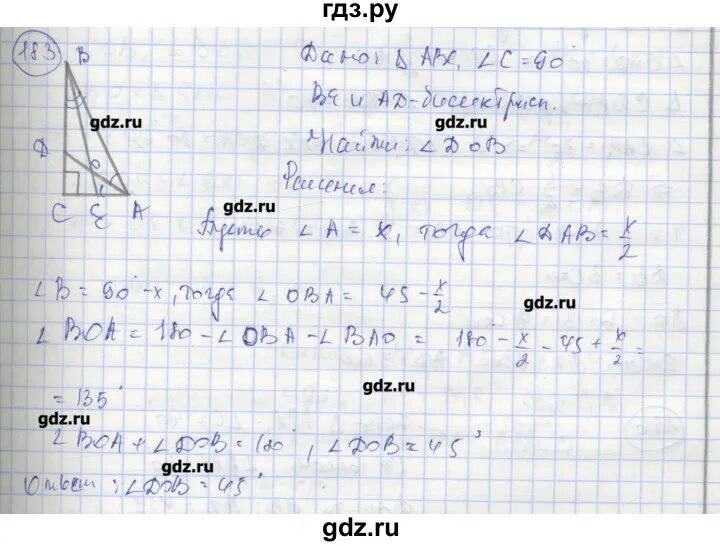 гдз.ру
183
B
Дано: Δ ABC, ∠C = 90°
BE и AD - биссектрис.
gdz.ru
gdz.ru
D
O
Найти: ∠DOB
Решение:
gdz.ru
C E A
Пусть ∠A = x, тогда ∠DAB = x/2
∠B = 90° - x, тогда ∠OBA = 45 - x/2
gdz.ru
∠BOA = 180 - ∠OBA - ∠BAO = 180° - x/2 - 45 + x/2 =
gdz.ru
= 135°
gdz.ru
∠BOA + ∠DOB = 180°, ∠DOB = 45°
gdz.ru
gdz.ru
Ответ: ∠DOB = 45°
gdz.ru